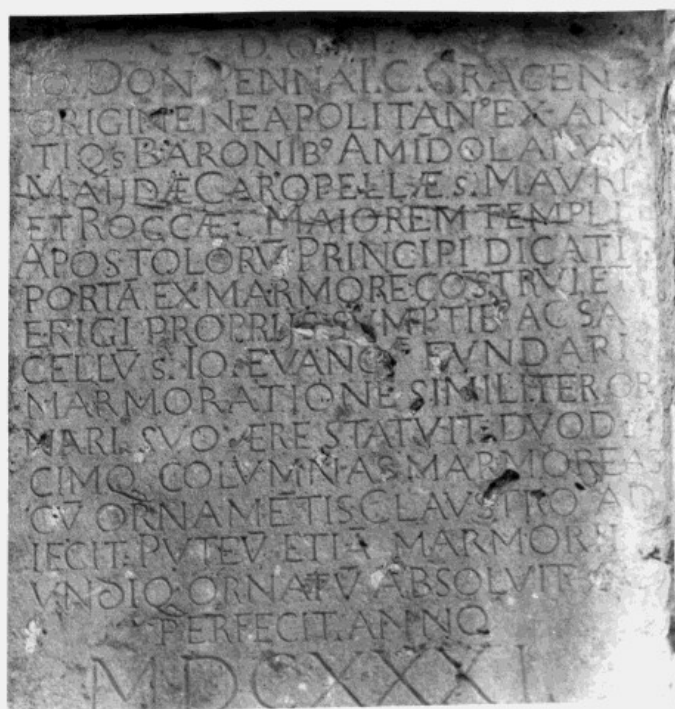 D. O. M.
IO. DON PENNA I. C. GRAGEN
ORIGINE NEAPOLITAN⁹ EX AN
TIQs BARONIB⁹ AMĪDOLARVM
MAIJDÆ CAROPELLÆ s. MAVRI
ET ROCCÆ. MAIOREM TEMPLI
APOSTOLORV̄ PRINCIPI DICATI
PORTĀ EX MARMORE CŌSTRVI ET
ERIGI PROPRIJS SVMPTIB⁹ AC SA
CELLV̄ s. IO. EVANGᴱ FVNDARI
MARMORATIONE SIMILITER OR
NARI. SVO ÆRE STATVIT: DVODE
CIMQ COLVMNAS MARMOREAS
CV̄ ORNAMĒTIS CLAVSTRO AD
IECIT: PVTEV̄ ETIĀ MARMORE
VNDIQ. ORNATV̄ ABSOLVIT
PERFECIT. ANNO
MDCXXXI